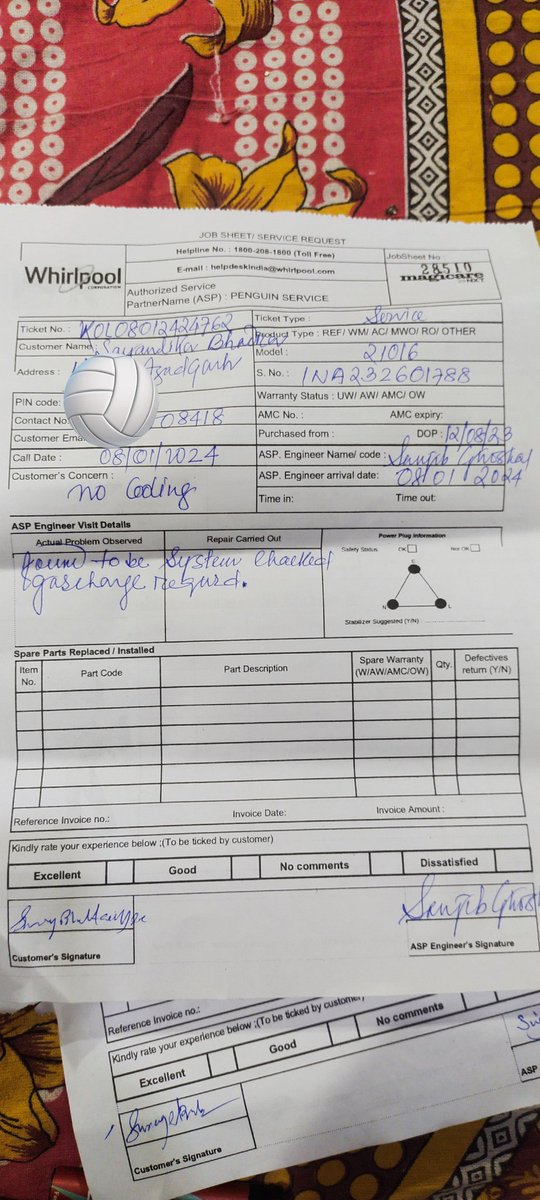 JOB SHEET/ SERVICE REQUEST
Whirlpool
CORPORATION
Helpline No. : 1800-208-1800 (Toll Free)
E-mail : helpdeskindia@whirlpool.com
Authorized Service
PartnerName (ASP) : PENGUIN SERVICE
JobSheet No
28510
magicare
NXT
Ticket No. : KOL08012424762
Customer Name :
Address : Azadgarh
PIN code:
Contact No: 08418
Customer Ema
Call Date : 08/01/2024
Customer's Concern :
no Cooling
Ticket Type : Service
Product Type : REF/ WM/ AC/ MWO/ RO/ OTHER
Model : 21016
S. No. : INA232601788
Warranty Status : UW/ AW/ AMC/ OW
AMC No. : AMC expiry:
Purchased from : DOP : 12/08/23
ASP. Engineer Name/ code : Sanjib Ghoshal
ASP. Engineer arrival date: 08/01 2024
Time in: Time out:
ASP Engineer Visit Details
Actual Problem Observed
found to be System Chacked
gascharge requrd.
Repair Carried Out
Power Plug Information
Safety Status OK Not OK
E
N L
Stabilizer Suggested (Y/N)
Spare Parts Replaced / Installed
Item No. Part Code Part Description Spare Warranty (W/AW/AMC/OW) Qty. Defectives return (Y/N)
Reference Invoice no.: Invoice Date: Invoice Amount :
Kindly rate your experience below ;(To be ticked by customer)
Excellent Good No comments Dissatisfied
Customer's Signature
Sanjib Ghosh
ASP Engineer's Signature
Reference Invoice no.:
Kindly rate your experience below ;(To be ticked by customer)
Excellent Good No comments
Customer's Signature
ASP